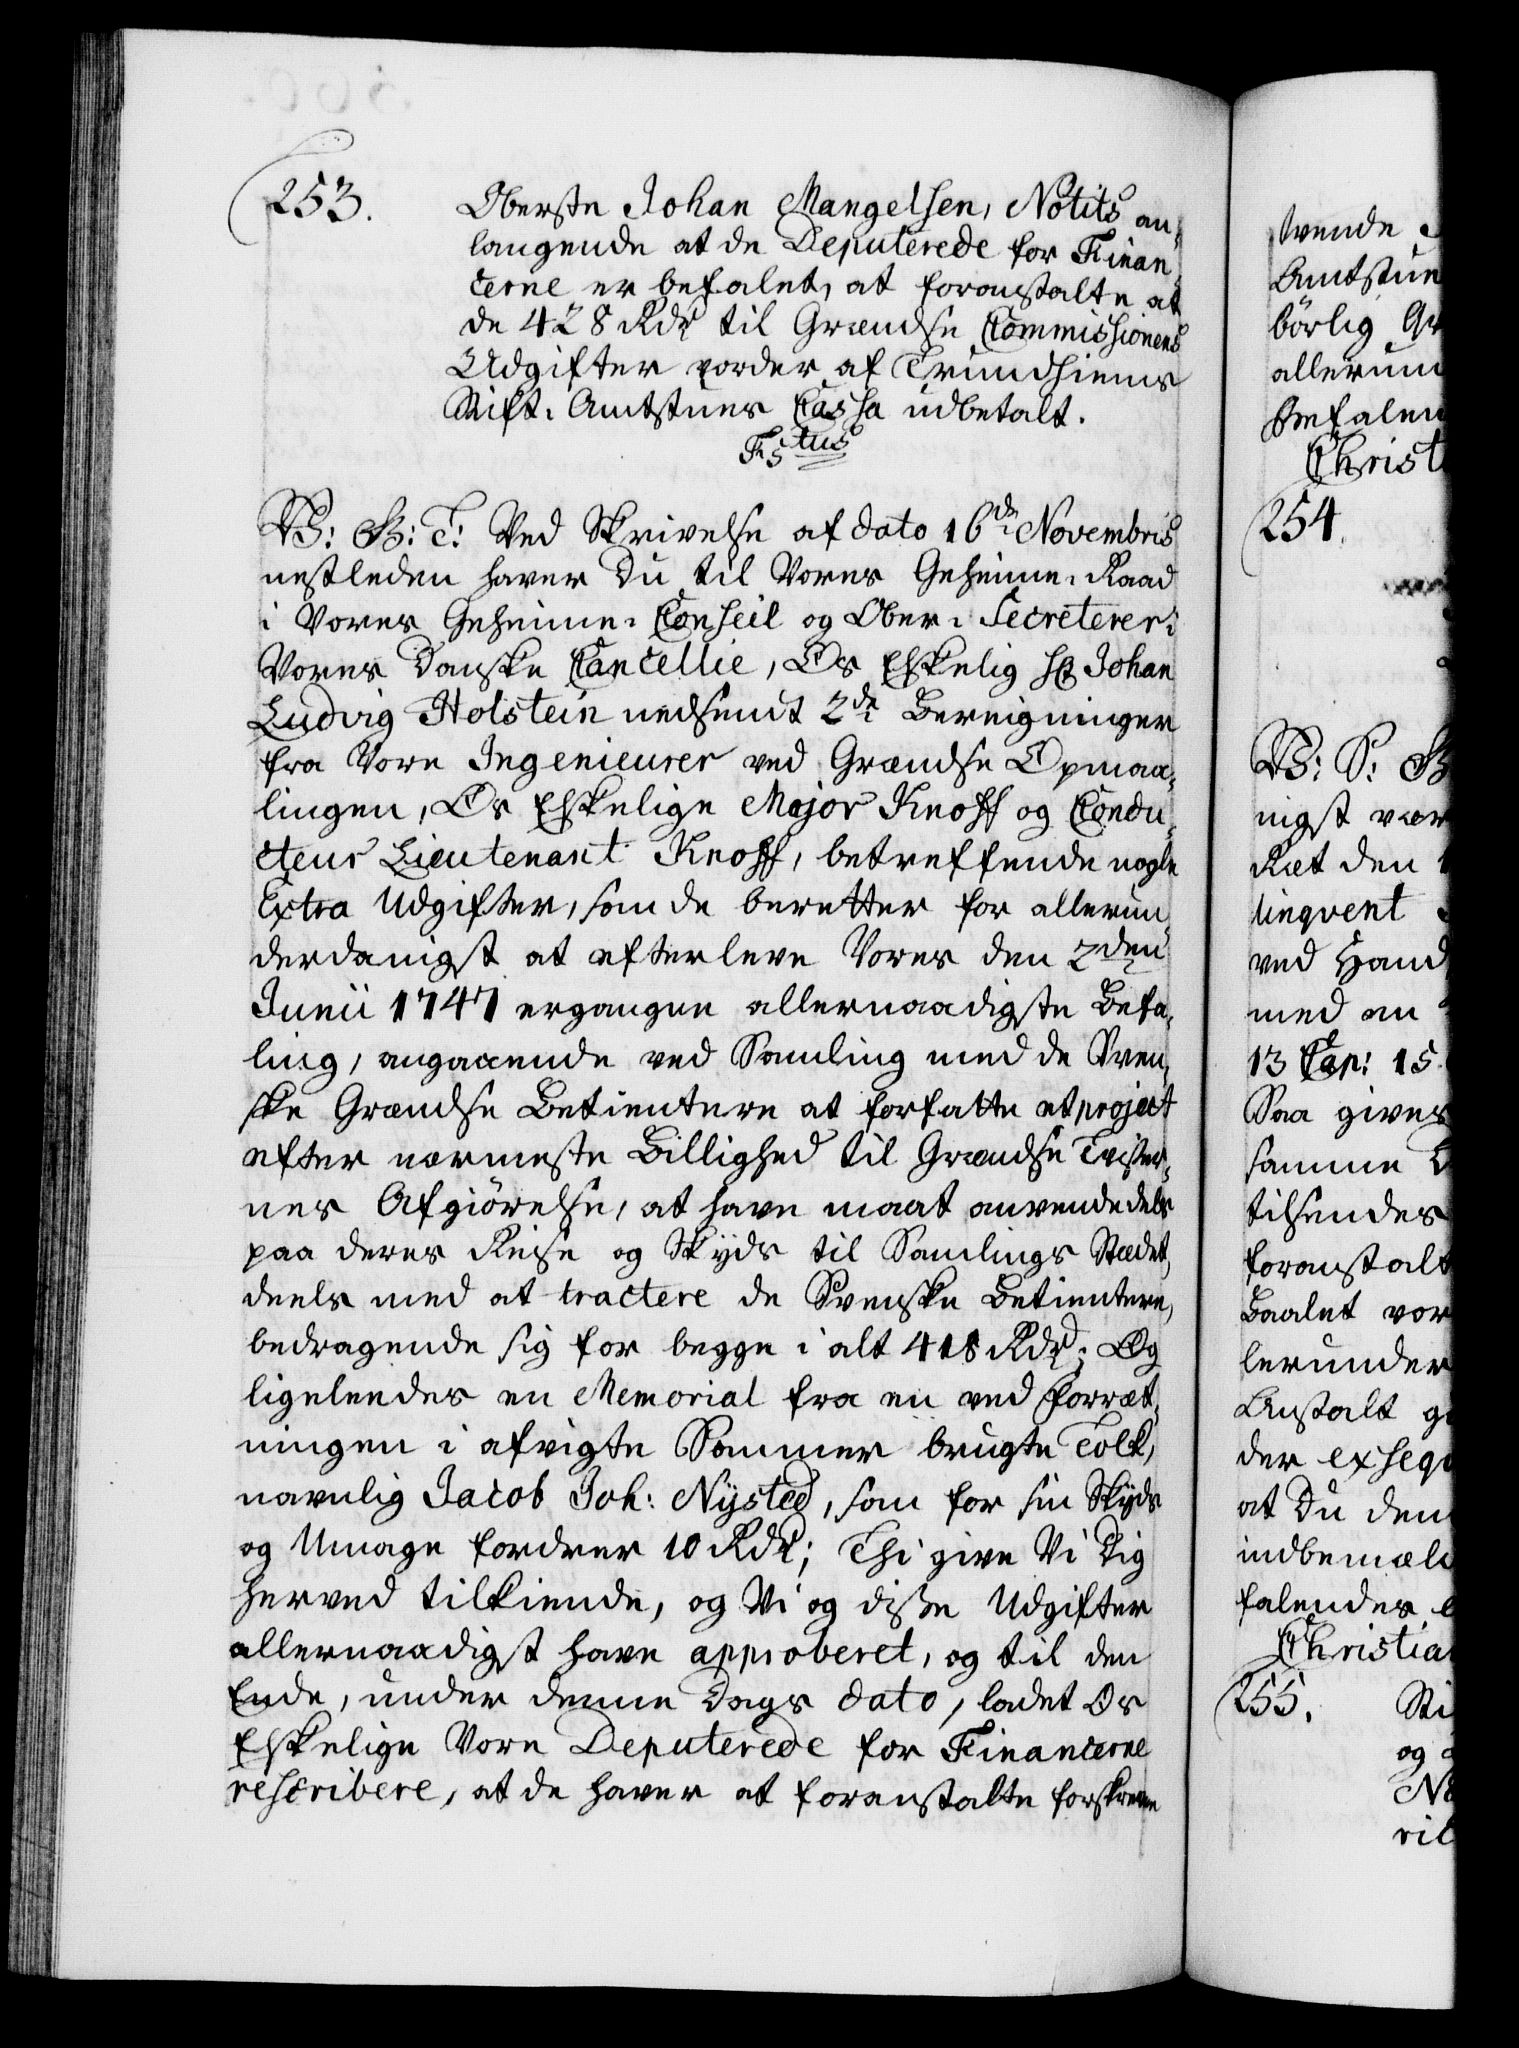 253.
Oberste Johan Mangelsen, Notits an-
langende at de Deputerede for Finan-
cerne er befalet, at foranstalte at
de 428 Rdr til Grændse Commissionens
Udgifter vorder af Trundhiems
Stift: Amtstues Cassa udbetalt.
Fstus
V: G: T: Ved Skrivelse af dato 16de Novembris
nestleden haver Du til Vores Geheime-Raad
i Vores Geheime-Conseil og Ober-Secreterer i
Vores Danske Cancellie, Os Elskelig Hr Johan
Ludvig Holstein nedsendt 2de Beregninger
fra Vore Ingenieurer ved Grændse Opmaa-
lingen, Os Elskelige Major Knoff og Condu-
cteur Lieutenant Knoff, betreffende nogle
Extra Udgifter, som de beretter for allerun-
derdanigst at efterleve Vores den 2den
Junii 1747 ergangne allernaadigste Befa-
ling, angaaende ved Samling med de Sven-
ske Grændse Betientere at forfatte et project
efter nærmeste Billighed til Grændse Tvister-
nes Afgiörelse, at have maat anvende dels
paa deres Reise og Skyds til Samlings Stædet,
deels med at tractere de Svenske Betientere,
bedragende sig for begge i alt 418 Rdr; Og
ligeledes en Memorial fra en ved Forræt-
ningen i afvigte Sommer brugte Tolk,
navnlig Jacob Joh: Nysted, som for sin Skyds
og Umage fordrer 10 Rdr; Thi give Vi Dig
herved tilkiende, og Vi og disse Udgifter
allernaadigst have approberet, og til den
Ende, under denne Dags dato, ladet Os
Elskelige Vore Deputerede for Financerne
rescribere, at de haver at foranstalte forskrevne
tvende
Amtstue
börlig
allerun
Befalen
Christ
254.
V: S: G
nigst vær
Ræt den
linqvent
ved Hand
med en
13 Cap: 15
Saa gives
samme
tilsendes
foranstalt
Baalet vor
lerunder
Anstalt
der exseqv
at Du den
indbemæl
falendes
Christia
255.
Sti
og
ril